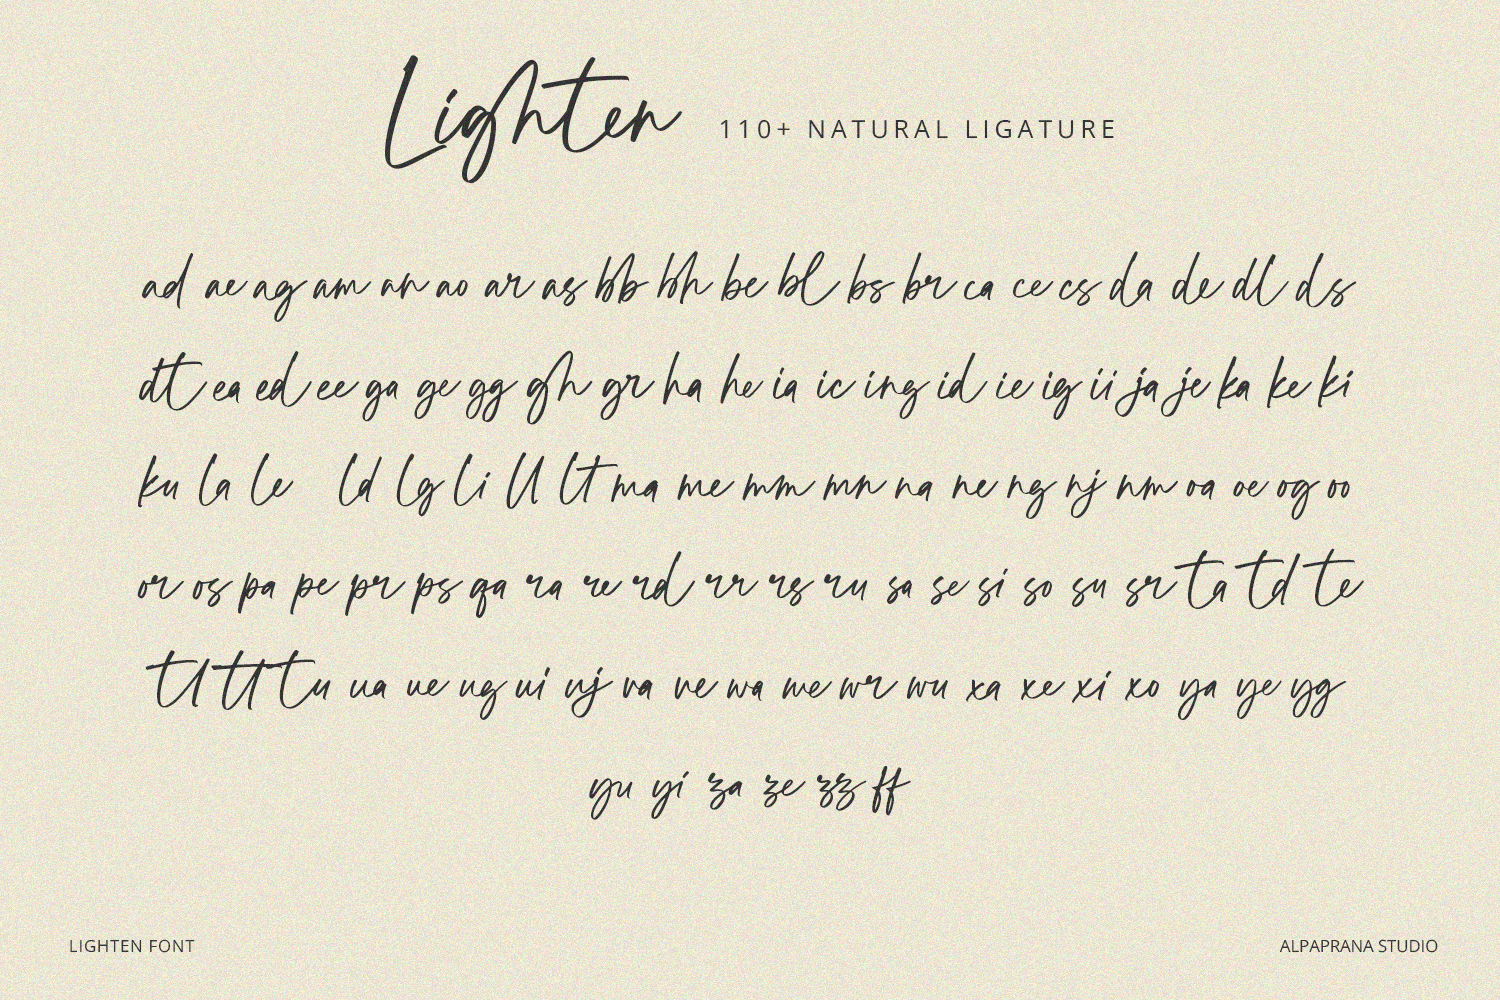 Lighten 110+ NATURAL LIGATURE
ad ae ag am an ao ar as bb bh be bl bs br ca ce cs da de dl ds
dt ea ed ee ga ge gg gh gr ha he ia ic ing id ie ig ii ja je ka ke ki
ku la le ld lg li ll lt ma me mm mn na ne ng nj nm oa oe og oo
or os pa pe pr ps qa ra re rd rr rs ru sa se si so su sr ta td te
tl tt tu ua ue ug ui uj va ve wa we wr wu xa xe xi xo ya ye yg
yu yi za ze zz ff
LIGHTEN FONT
ALPAPRANA STUDIO